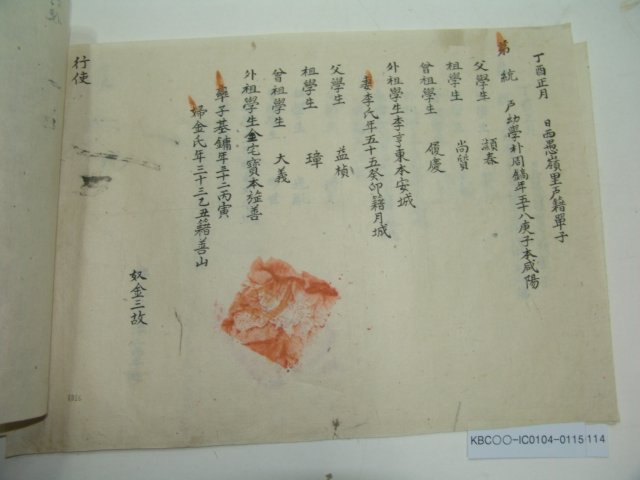 丁酉正月 日西愚嶺里戶籍單子
第 統 戶幼學朴周鎬年五十八庚子本咸陽
父學生 頴泰
祖學生 尚質
曾祖學生 履慶
外祖學生李亨東本安城
妻李氏年五十五癸卯籍月城
父學生 益楨
祖學生 瑋
曾祖學生 大義
外祖學生金宅寶本善
率子基鏞年三十二丙寅
婦金氏年三十三乙丑籍善山
奴金三故
行使
KBC○○-IC0104-0115 114